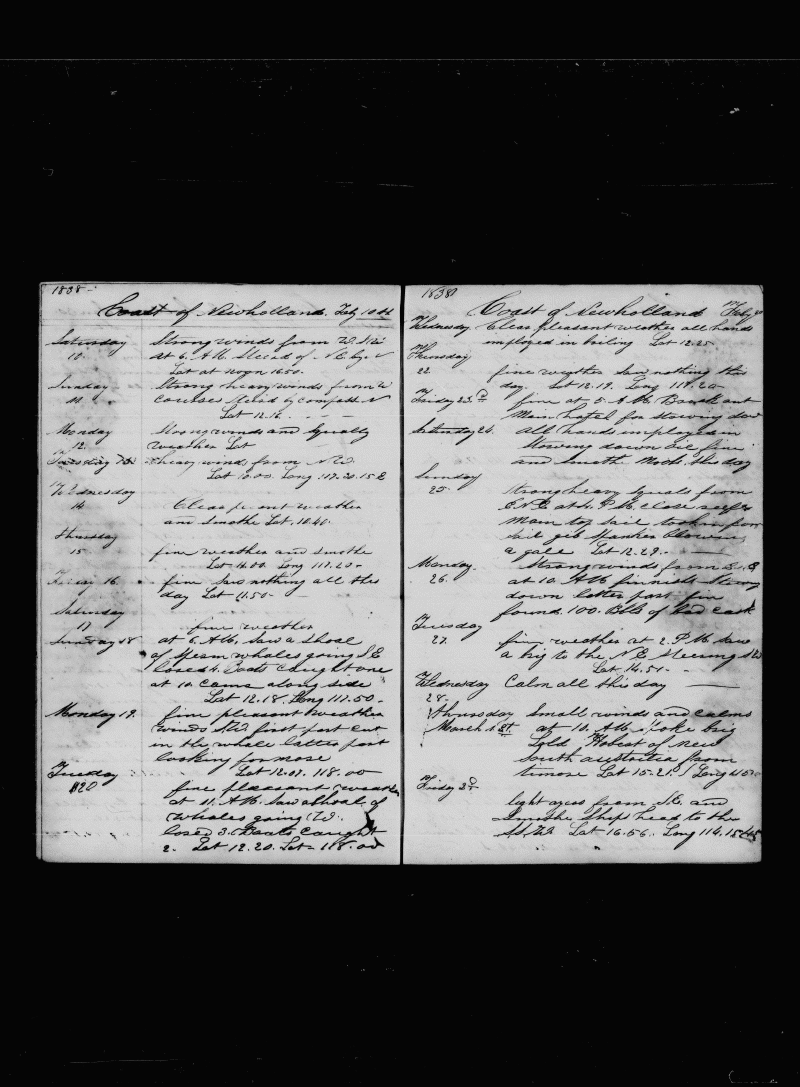 1838
Coast of Newholland. Feby 10th
Saturday Strong winds from
10 At 6. AM Steard of N.E by N
Lat at noon 16.50.
Sunday Strong heavy winds from
11 courses Steard by compass N
Lat 12.12
Monday Strong winds and Squally
12. weather Lat
Tuesday 13 heavy winds from N.W
Lat 10.00. Long 117.20.15 E
Wednesday
14 weather
and Smothe Lat. 10.40.
Thursday
15 fine weather and smothe
Lat 11.00. Long 117.20
Friday 16. fine Saw nothing all this
day Lat 11.50
Saturday
17 fine weather
Sunday 18 at 6. AM. Saw a Shoal
of Sperm whales going S.E
losed 4. Boats Caught one
at 10 Came along side
Lat 12.18. Long 117.50.
Monday 19. fine pleasant weather
winds first part cut
in the whale latter part
looking for more
Tuesday Lat 12.07. 118.00
20 fine pleasant weather
at 11. AM. Saw a Shoal of
whales going W.
losed 3. Boats Caught
2. Lat 12.20. Lat 118.00
1838
Coast of Newholland Feby
Wednesday Clear pleasant weather all hands
employed in boiling Lat 12.25
Thursday
22 fine weather Saw nothing this
day. Lat 12.19. Long 117.20
Friday 23.d fine at 5. AM. Break out
Main for Stowing down
Saturday 24. All hands employed in
Stowing down Oil fine
and Smothe this day
Sunday
25. Strong heavy Squals from
E.N.E. at 4. P.M. Close
Main top Sail
Sail gib Spanker Blowing
a gale Lat 12.29.
Monday Strong winds from
26. at 10. AM finnish
down latter part fine
found 100. Bbls of Cask
Tuesday
27. fine weather at 2. P.M. Saw
a big to the N.E Steering
Lat 14.51
Wednesday Calm all this day
28
Thursday Small winds and calms
March 1 st at 10. AM. Spoke brig
Hobeat of New
South from
timore Lat 15.21. Long
Friday 2d
light from S.E. and
Smothe Ships head to the
Lat 16.56. Long 114.15